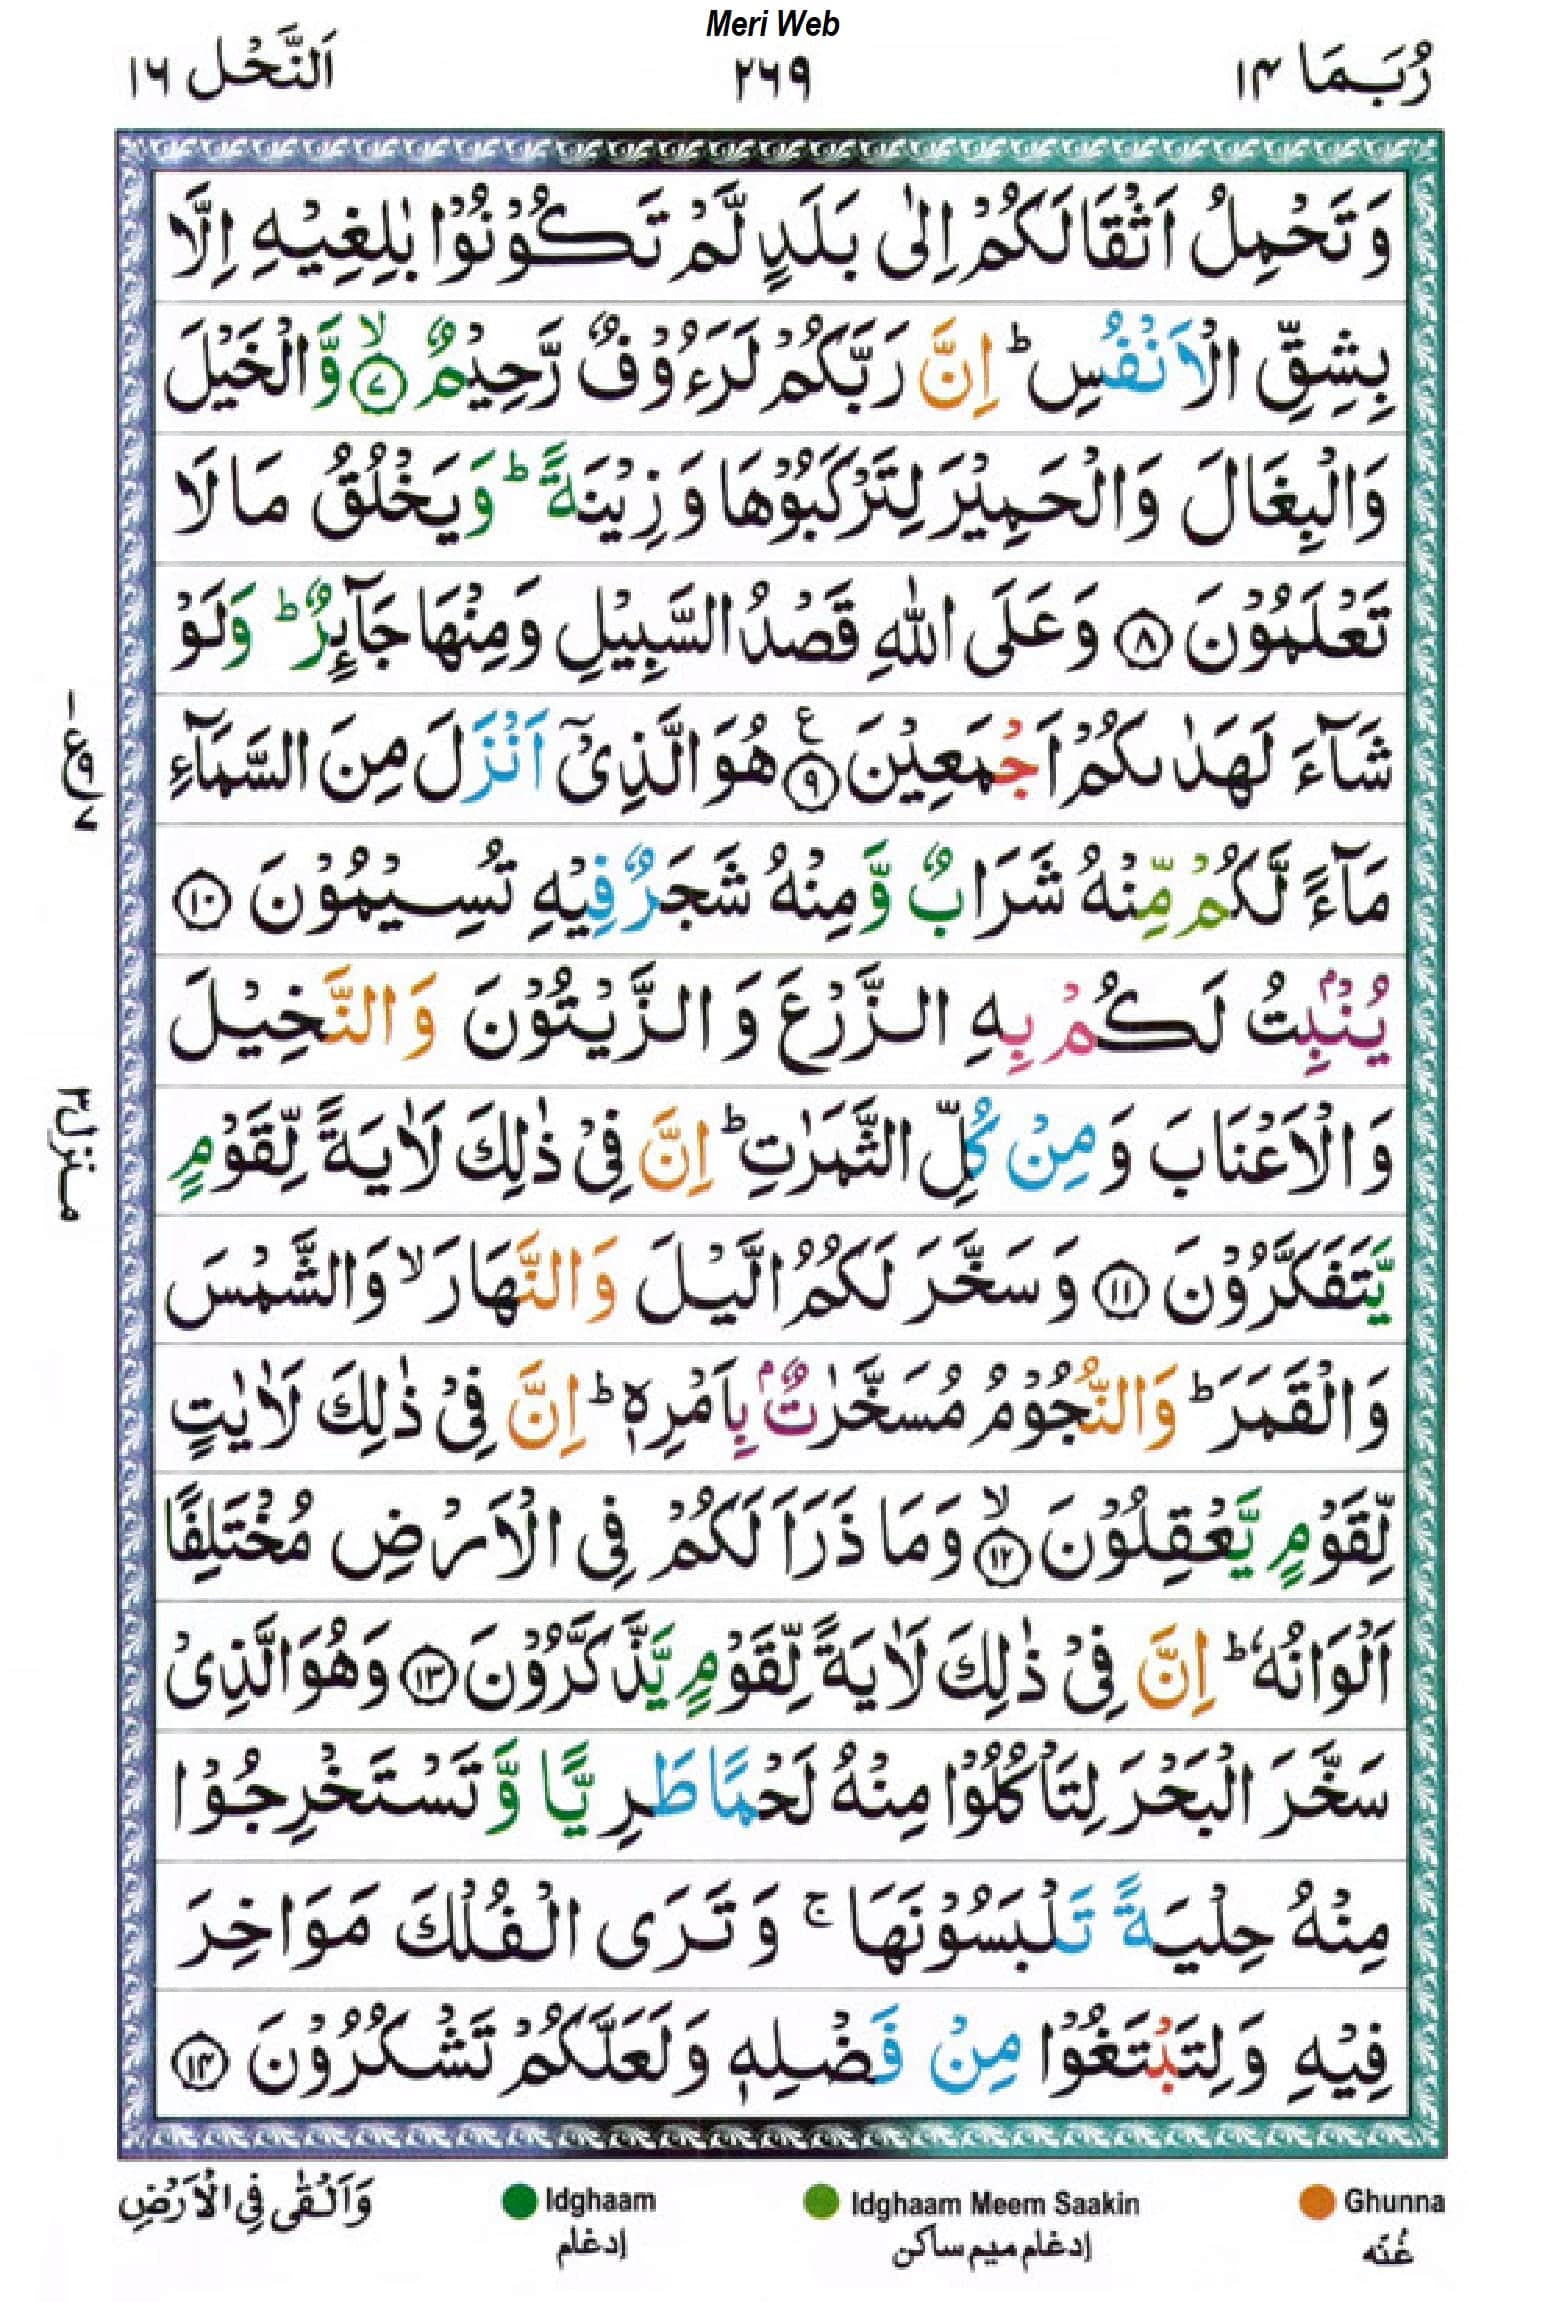 Meri Web
رُبَمَا ١٤
٢٦٩
اَلنَّحْل ١٦
وَتَحْمِلُ اَثْقَالَكُمْ اِلٰى بَلَدٍ لَّمْ تَكُوْنُوْا بٰلِغِيْهِ اِلَّا
بِشِقِّ الْاَنْفُسِ ؕ اِنَّ رَبَّكُمْ لَرَءُوْفٌ رَّحِيْمٌ ۙ‏﴿۷﴾ وَّالْخَيْلَ
وَالْبِغَالَ وَالْحَمِيْرَ لِتَرْكَبُوْهَا وَزِيْنَةً ؕ وَيَخْلُقُ مَا لَا
تَعْلَمُوْنَ ﴿۸﴾ وَعَلَى اللّٰهِ قَصْدُ السَّبِيْلِ وَمِنْهَا جَآٮِٕرٌ ؕ وَلَوْ
شَآءَ لَهَدٰٮكُمْ اَجْمَعِيْنَ ﴿۹﴾ ع هُوَ الَّذِىْۤ اَنْزَلَ مِنَ السَّمَآءِ
مَآءً لَّكُمْ مِّنْهُ شَرَابٌ وَّمِنْهُ شَجَرٌ فِيْهِ تُسِيْمُوْنَ ﴿۱۰﴾
يُنْۢبِتُ لَكُمْ بِهِ الزَّرْعَ وَالزَّيْتُوْنَ وَالنَّخِيْلَ
وَالْاَعْنَابَ وَمِنْ كُلِّ الثَّمَرٰتِ ؕ اِنَّ فِىْ ذٰلِكَ لَاٰيَةً لِّقَوْمٍ
يَّتَفَكَّرُوْنَ ﴿۱۱﴾ وَسَخَّرَ لَكُمُ الَّيْلَ وَالنَّهَارَ ۙ وَالشَّمْسَ
وَالْقَمَرَ ؕ وَالنُّجُوْمُ مُسَخَّرٰتٌۢ بِاَمْرِهٖ ؕ اِنَّ فِىْ ذٰلِكَ لَاٰيٰتٍ
لِّقَوْمٍ يَّعْقِلُوْنَ ۙ‏﴿۱۲﴾ وَمَا ذَرَاَ لَكُمْ فِى الْاَرْضِ مُخْتَلِفًا
اَلْوَانُهٗ ؕ اِنَّ فِىْ ذٰلِكَ لَاٰيَةً لِّقَوْمٍ يَّذَّكَّرُوْنَ ﴿۱۳﴾ وَهُوَ الَّذِىْ
سَخَّرَ الْبَحْرَ لِتَاْكُلُوْا مِنْهُ لَحْمًا طَرِيًّا وَّتَسْتَخْرِجُوْا
مِنْهُ حِلْيَةً تَلْبَسُوْنَهَا ۚ وَتَرَى الْفُلْكَ مَوَاخِرَ
فِيْهِ وَلِتَبْتَغُوْا مِنْ فَضْلِهٖ وَلَعَلَّكُمْ تَشْكُرُوْنَ ﴿۱۴﴾
منزل ٣
وَاَلْقٰى فِى الْاَرْضِ
Idghaam
إدغام
Idghaam Meem Saakin
إدغام ميم ساكن
Ghunna
غُنّه